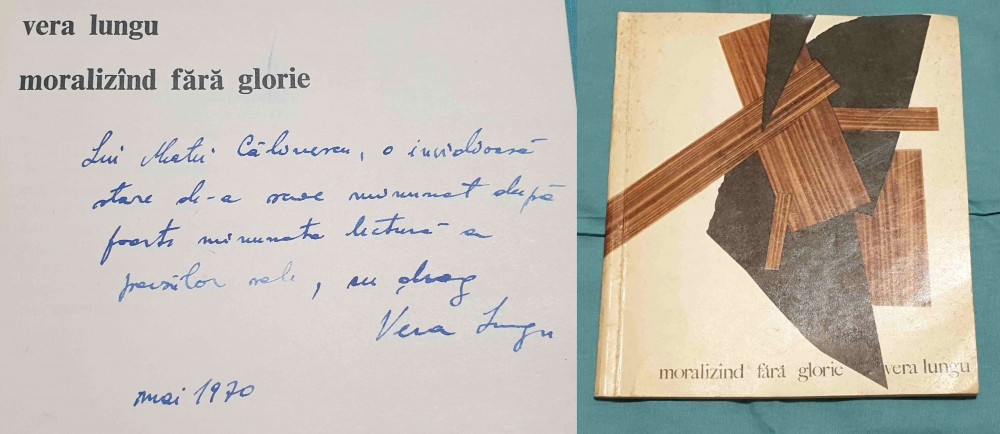 vera lungu
moralizînd fără glorie
Lui Matei Călinescu, o invidioasă
stare de-a scrie minunat după
foarte minunata lectură a
poeziilor sale, cu drag
Vera Lungu
mai 1970
moralizînd fără glorie vera lungu